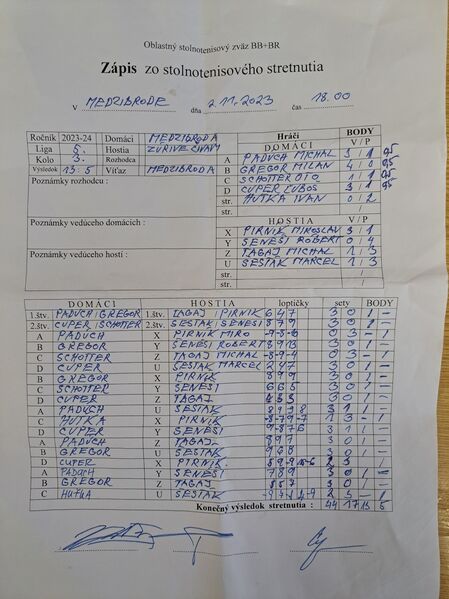 Oblastný stolnotenisový zväz BB+BR
Zápis zo stolnotenisového stretnutia
V MEDZIBRODE dňa 2.11.2023 čas 18.00
Ročník 2023-24 Domáci MEDZIBRODA
Liga 5. Hostia
Kolo 3. Rozhodca
Výsledok 13:5 Víťaz MEDZIBRODA
Poznámky rozhodcu :
Poznámky vedúceho domácich :
Poznámky vedúceho hostí :
Hráči BODY
DOMÁCI V / P
A PADUCH MICHAL 3 / 1
B GREGOR MILAN 4 / 0
C SCHOTTER OTO 1 / 1
D CUPER ĽUBOS 3 / 1
str. HUTKA IVAN 0 / 2
HOSTIA V / P
X PIRNIK MIROSLAV 3 / 1
Y SENEŠI ROBERT 0 / 4
Z TAGAJ MICHAL 1 / 3
U SESTAK MARCEL 1 / 3
str. /
str. /
DOMÁCI HOSTIA loptičky sety BODY
1.štv. PADUCH GREGOR 1.štv. TAGAJ PIRNIK 6 4 7 3 0 1 -
2.štv. CUPER SCHOTTER 2.štv. SESTAK SENESI 8 7 9 3 0 1 -
A PADUCH X PIRNIK MIRO 0 3 - 1
B GREGOR Y SENESI ROBERT 3 0 1 -
C SCHOTTER Z TAGAJ MICHAL -8-9-4 0 3 - 1
D CUPER U SESTAK MARCEL 2 4 7 3 0 1 -
B GREGOR X PIRNIK 8 9 9 3 0 1 -
C SCHOTTER Y SENESI 6 6 5 3 0 1 -
D CUPER Z TAGAJ 3 0 1 -
A PADUCH U SESTAK 3 1 1 -
C HUTKA X PIRNIK -8-79-7 1 3 - 1
D CUPER Y SENESI 3 1 1 -
A PADUCH Z TAGAJ 8 9 7 3 0 1 -
B GREGOR U SESTAK 9 6 8 3 0 1 -
D CUPER X PIRNIK
A PADUCH Y SENESI 7 8 9 3 0 1 -
B GREGOR Z TAGAJ 3 0 1 -
C HUTKA U SESTAK 2 3 - 1
Konečný výsledok stretnutia : 44 17 13 5